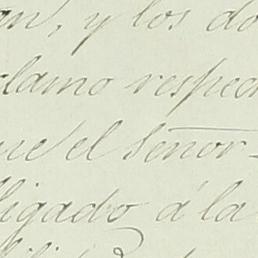 on, y los do
clamo respec
ue el Señor-
ligado á la